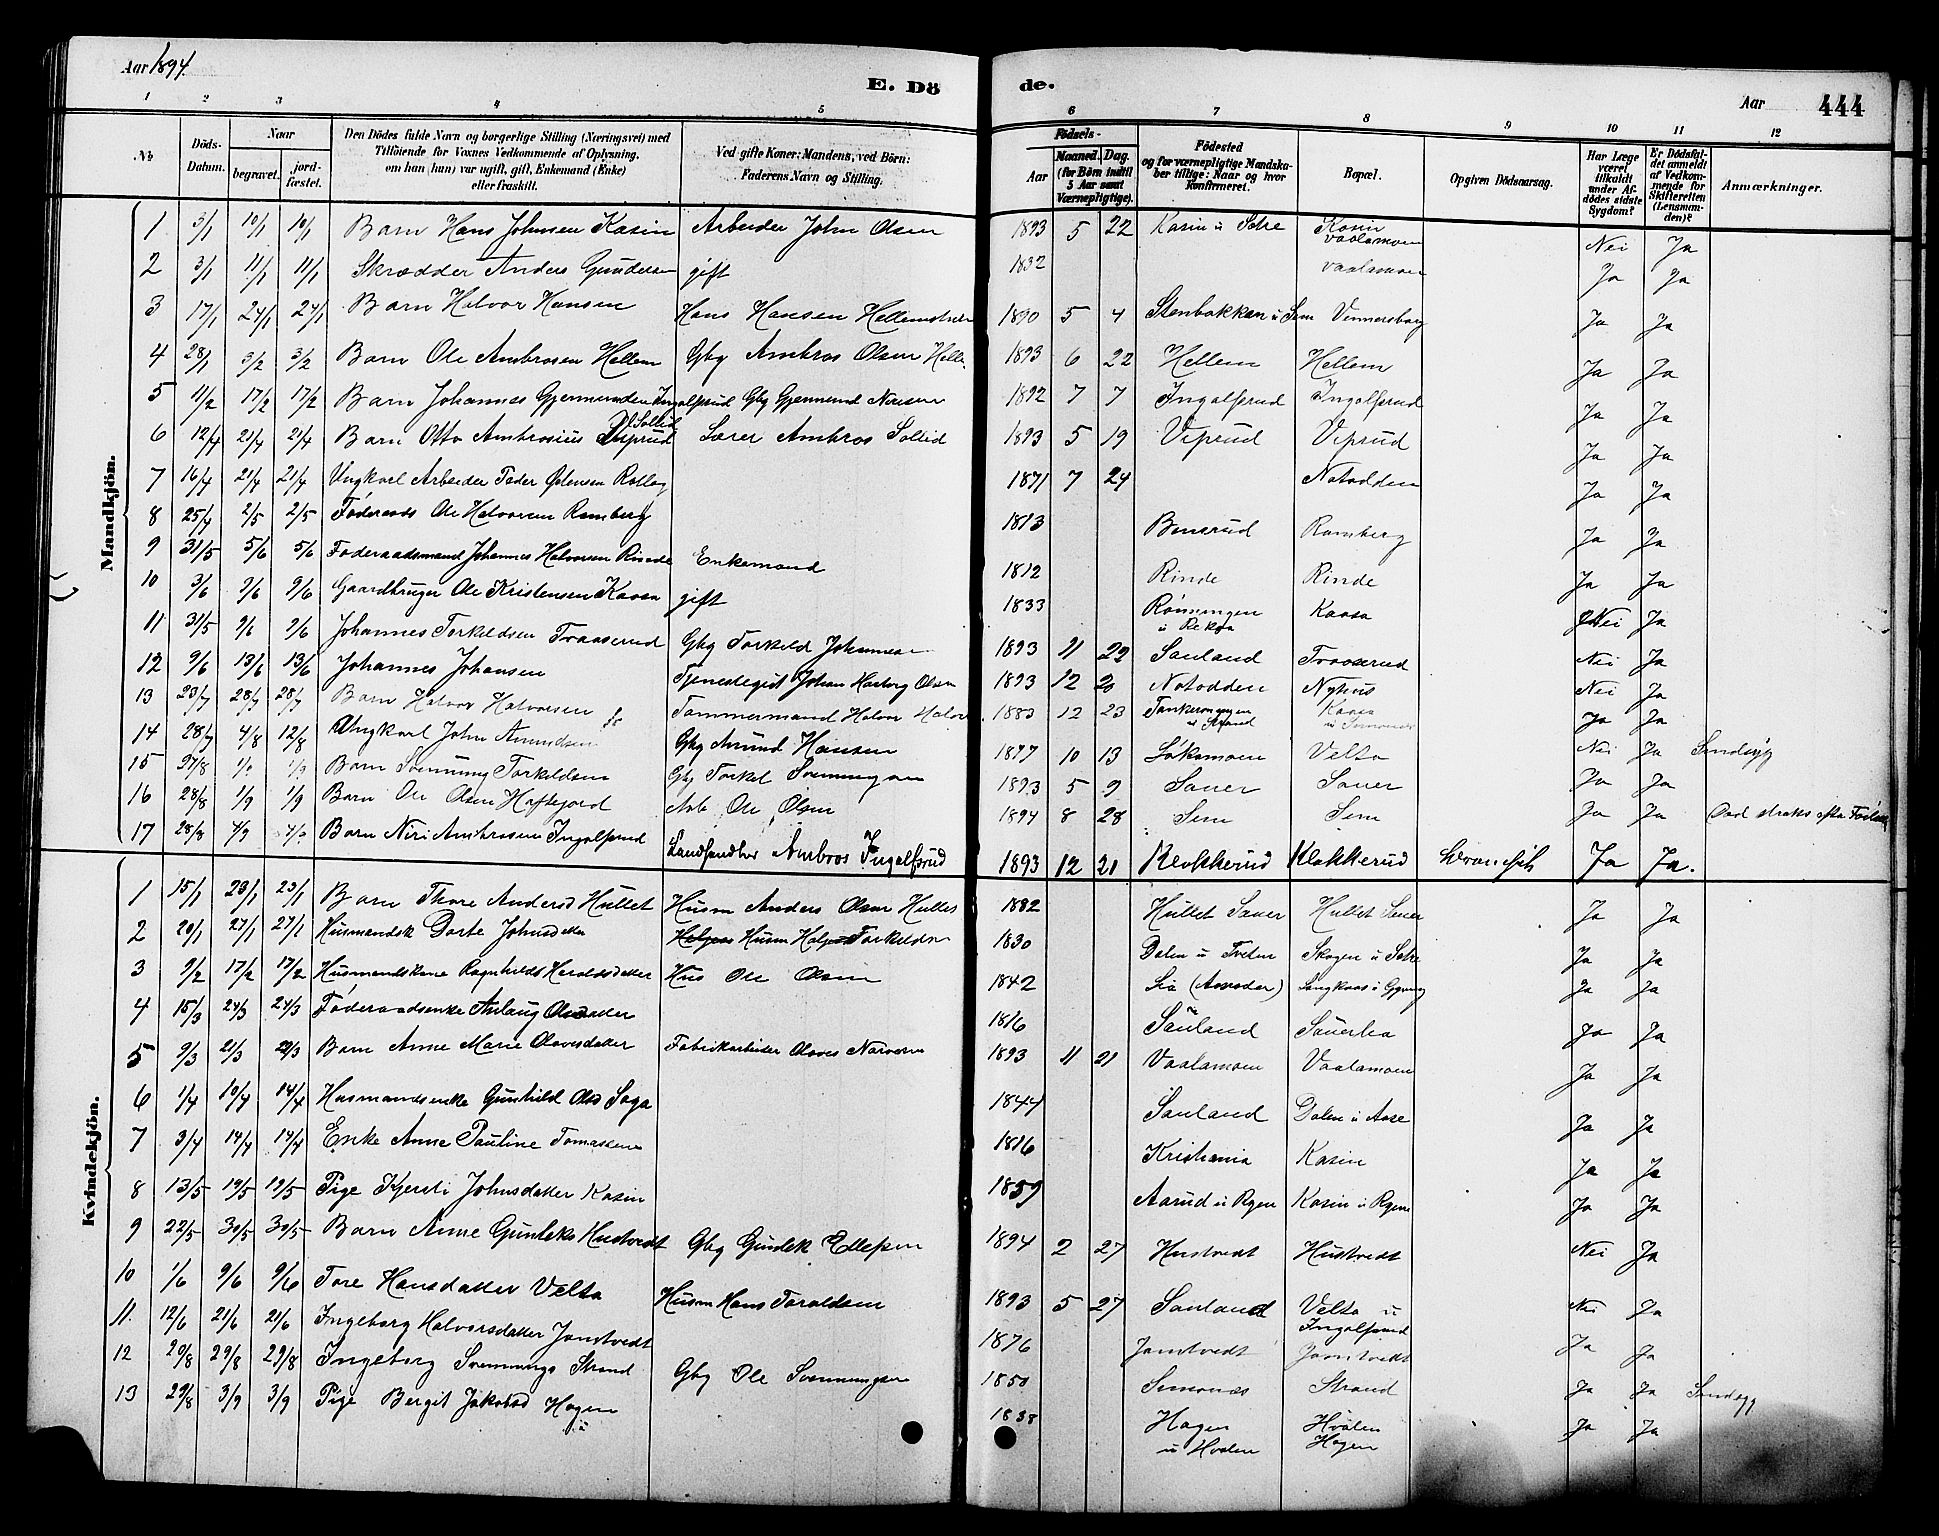 Aar 1894.
E. Dö de.
Aar 444
1 2 3 4 5 6 7 8 9 10 11 12
No
Döds-Datum.
Naar
begravet.
jordfæstet.
Den Dödes fulde Navn og borgerlige Stilling (Næringsvei) med Tilföiende for Voxnes Vedkommende af Oplysning, om han (hun) var ugift, gift, Enkemand (Enke) eller fraskilt.
Ved gifte Koner: Mandens, ved Börn: Faderens Navn og Stilling.
Födsels-
Aar
Maaned. Dag.
(for Börn indtil 5 Aar samt Værnepligtige).
Födested og for værnepligtige Mandskaber tillige: Naar og hvor Konfirmeret.
Bopæl.
Opgiven Dödsaarsag.
Har Læge været tilkaldt under Afdödes sidste Sygdom?
Er Dödsfaldet anmeldt af Vedkommende for Skifteretten (Lensmanden)?
Anmærkninger.
Mandkjön.
1 3/1 10/1 10/1 Barn Hans Johnsen Kasin Arbeider John Olsen 1893 5 22 Kasin u Sotre Kasin Vaalamoen Nei Ja
2 3/1 11/1 11/1 Skrædder Anders Gundersen gift 1832 Vaalamoen Ja Ja
3 17/1 24/1 24/1 Barn Halvor Hansen Hans Hansen 1890 5 4 Stenbakken u Sem Vinnersborg Ja Ja
4 28/1 3/2 3/2 Barn Ole Ambrosen Hellem Gbg Ambros Olsen Helle 1893 6 22 Hellem Hellem Ja Ja
5 11/2 17/2 17/2 Barn Johannes Gjermundsen Ingolfsrud Gbg Gjermund Nirisen 1892 7 7 Ingolfsrud Ingolfsrud Ja Ja
6 12/4 21/4 21/4 Barn Otto Ambrosius Sollid Lærer Ambros Sollid 1893 5 19 Viprud Viprud Ja Ja
7 16/4 21/4 21/4 Ungkarl Arbeider Peder Rollag 1871 7 24 Notodden Ja Ja
8 25/4 2/5 2/5 Föderaads Ole Halvorsen Ramberg 1813 Bensrud Ramberg Ja Ja
9 31/5 5/6 5/6 Föderaadsmand Johannes Halvorsen Rinde Enkemand 1812 Rinde Rinde Ja Ja
10 3/6 9/6 9/6 Gaardbruger Ole Kristensen Kaasa gift 1833 Rönningen u Rekaa Kaasa Nei Ja
11 31/5 9/6 9/6 Johannes Torkildsen Traaserud Gbg Torkild Johannesen 1893 11 22 Sauland Traaserud Nei Ja
12 9/6 13/6 13/6 Johannes Johansen Tjenestegut Johan Olsen 1893 12 20 Notodden Nyhus Nei Ja
13 23/7 28/7 28/7 Barn Halvor Halvorsen Tømmermand Halvor 1883 12 23 Kaasa Ja Ja
14 28/7 4/8 12/8 Ungkarl John Amundsen Gbg Amund Hansen 1877 10 13 Løkamoen Velta Nei Ja Sindssyg
15 27/8 1/9 1/9 Barn Svennung Torkildsen Gbg Torkel Svennungsen 1893 5 9 Sauer Sauer Ja Ja
16 28/8 1/9 1/9 Barn Ole Olsen Haftefjord Arb Ole Olsen 1894 8 28 Sem Sem Ja Ja Död straks efter Födselen
17 28/8 4/9 4/9 Barn Niri Ambrosen Ingolfsrud Landhandler Ambros Ingolfsrud 1893 12 21 Klokkerud Klokkerud Ja Ja.
Kvindekjön.
1 15/1 23/1 23/1 Barn Thore Andersd Hullet Husm Anders Olsen Hullet 1882 Hullet Sauer Hullet Sauer Ja Ja
2 20/1 27/1 27/1 Husmandsk Dorte Johnsdatter Husm Torkildsen 1830 Dalen u Tveten Skogen u Sotre Ja Ja
3 9/2 17/2 17/2 Husmandskone Ragnhild Haroldsdatter Hus Ole Olsen 1842 Lia Langkaas u Ja Ja
4 15/3 24/3 24/3 Föderaadsenke Aslaug 1816 Sauland Sauerlia Ja Ja
5 9/3 21/3 21/3 Barn Anne Marie Olavesdatter Fabrikarbeider Olaves Narvesen 1893 11 21 Vaalamoen Vaalamoen Ja Ja
6 1/4 10/4 14/4 Husmandsenke Gunhild Olsd Saga 1844 Sauland Dalen u Aase Ja Ja
7 3/4 14/4 14/4 Enke Anne Pauline Tomassen 1816 Kristiania Kasin Ja Ja
8 13/5 19/5 19/5 Pige Kjersti Johnsdatter Kasin 1859 Aarud u Rygen Kasin u Rygen Ja Ja
9 22/5 30/5 30/5 Barn Anne Gunleks Hustvedt Gbg Gunlek Ellefsen 1894 2 27 Hustvedt Hustvedt Nei Ja
10 1/6 9/6 9/6 Tore Hansdatter Velta Husm Hans Taraldsen 1893 5 27 Sauland Velta u Ingolfsrud Nei Ja
11. 12/6 21/6 21/6 Ingeborg Halvorsdatter Jamtvedt 1876 Jamtvedt Jamtvedt Ja Ja
12 20/8 29/8 29/8 Ingeborg Svennungs Strand Gbg Ole Svennungsen 1850 Semonæs Strand Ja Ja Sindssyg
13 29/8 3/9 3/9 Pige Bergit Jakobsd Hagen 1838 Hagen u Hvalen Hvalen Hagen Ja Ja